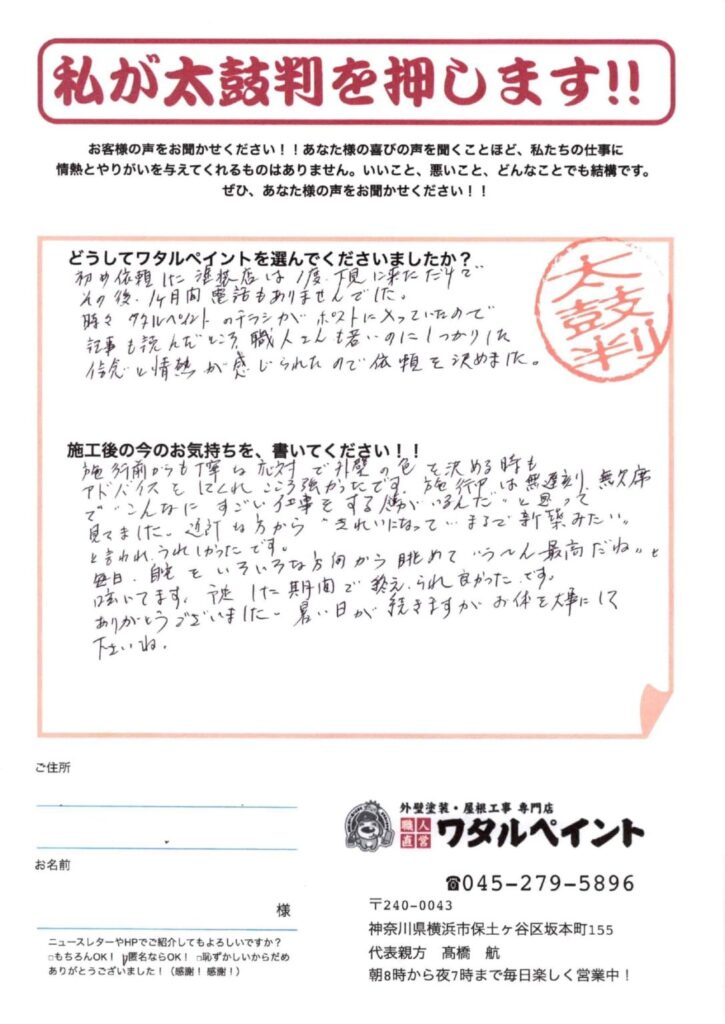 私が太鼓判を押します!!
お客様の声をお聞かせください！！あなた様の喜びの声を聞くことほど、私たちの仕事に
情熱とやりがいを与えてくれるものはありません。いいこと、悪いこと、どんなことでも結構です。
ぜひ、あなた様の声をお聞かせください！！
どうしてワタルペイントを選んでくださいましたか？
太鼓判
初め依頼した塗装店は1度下見に来ただけで
その後、1ヶ月間電話もありませんでした。
時々ワタルペイントのチラシがポストに入っていたので
記事も読んだところ職人さんも若いのにしっかりした
信念と情熱が感じられたので依頼を決めました。
施工後の今のお気持ちを、書いてください！！
施行前からも丁寧な応対で外壁の色を決める時も
アドバイスをしてくれこころ強かったです。施行中は無遅刻、無欠席
で"こんなにすごい仕事をする人がいるんだ"と思って
見てました。近所な方から"きれいになって…まるで新築みたい。
と言われ、うれしかったです。
毎日、自宅をいろいろな方向から眺めて"う～ん最高だね"と
呟いてます。予定した期間で終えられ良かったです。
ありがとうございました。暑い日が続きますがお体を大事にして
下さいね。
ご住所
お名前
様
ニュースレターやHPでご紹介してもよろしいですか？
□もちろんOK！ □匿名ならOK！ □恥ずかしいからだめ
ありがとうございました！（感謝！感謝！）
外壁塗装・屋根工事 専門店
職人直営 ワタルペイント
☎045-279-5896
〒240-0043
神奈川県横浜市保土ヶ谷区坂本町155
代表親方 髙橋 航
朝8時から夜7時まで毎日楽しく営業中！